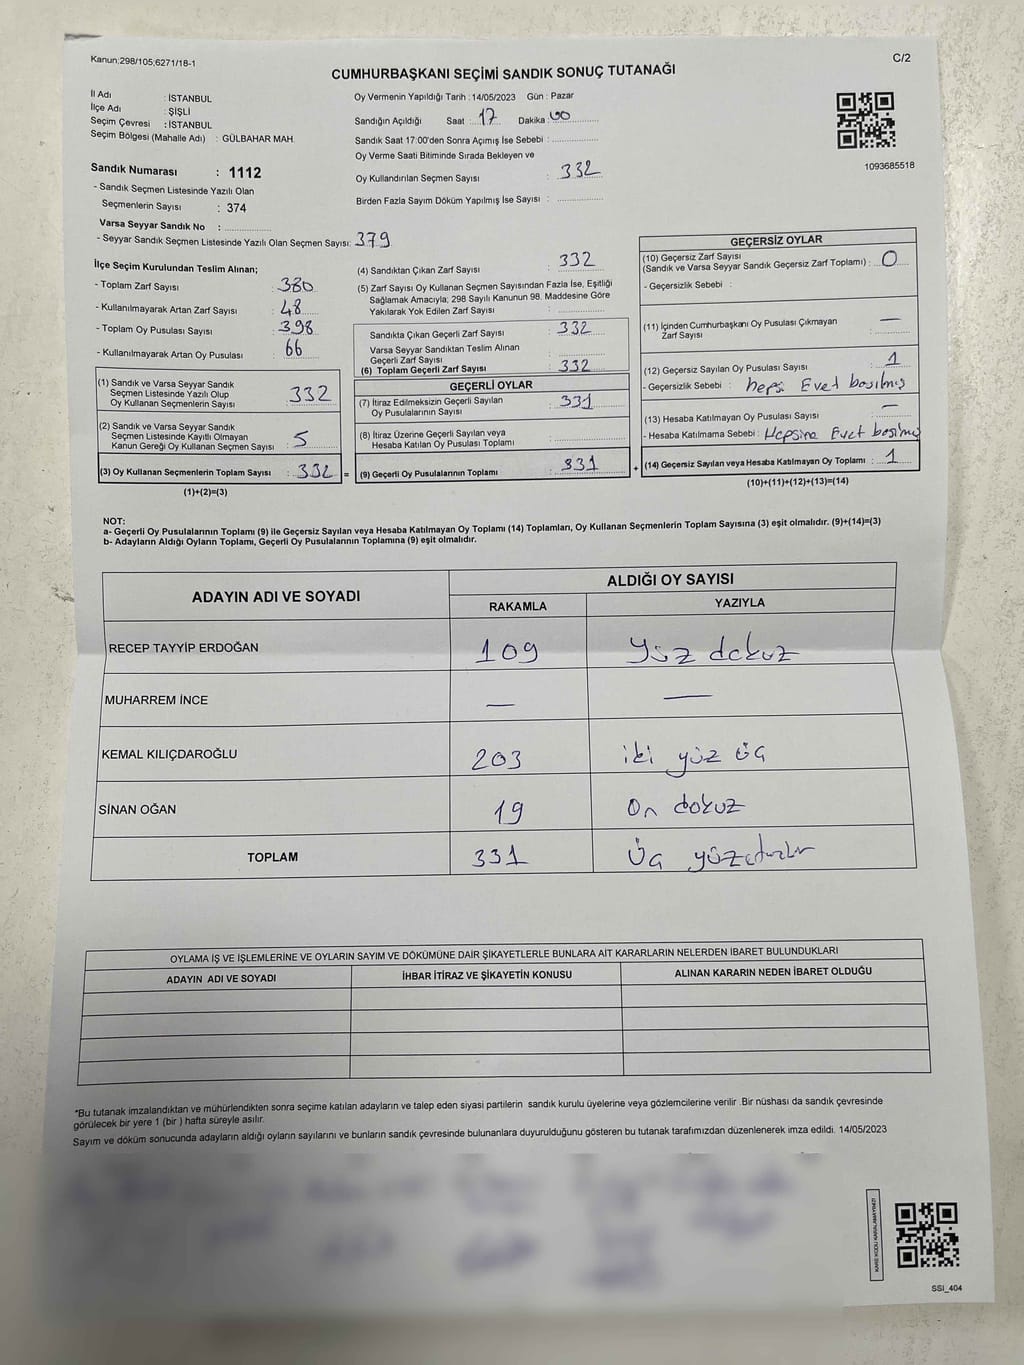 Kanun;298/105;6271/18-1
C/2
CUMHURBAŞKANI SEÇİMİ SANDIK SONUÇ TUTANAĞI
İl Adı : İSTANBUL
İlçe Adı : ŞİŞLİ
Seçim Çevresi : İSTANBUL
Seçim Bölgesi (Mahalle Adı) : GÜLBAHAR MAH.
Sandık Numarası : 1112
- Sandık Seçmen Listesinde Yazılı Olan
Seçmenlerin Sayısı : 374
Varsa Seyyar Sandık No : ..............
- Seyyar Sandık Seçmen Listesinde Yazılı Olan Seçmen Sayısı: 379
Oy Vermenin Yapıldığı Tarih : 14/05/2023 Gün : Pazar
Sandığın Açıldığı Saat : 17 Dakika : 00
Sandık Saat 17:00'den Sonra Açımış İse Sebebi : ..............
Oy Verme Saati Bitiminde Sırada Bekleyen ve
Oy Kullandırılan Seçmen Sayısı : 332
Birden Fazla Sayım Döküm Yapılmış İse Sayısı : ..............
1093685518
İlçe Seçim Kurulundan Teslim Alınan;
- Toplam Zarf Sayısı : 380
- Kullanılmayarak Artan Zarf Sayısı : 48
- Toplam Oy Pusulası Sayısı : 398
- Kullanılmayarak Artan Oy Pusulası : 66
(1) Sandık ve Varsa Seyyar Sandık
Seçmen Listesinde Yazılı Olup
Oy Kullanan Seçmenlerin Sayısı : 332
(2) Sandık ve Varsa Seyyar Sandık
Seçmen Listesinde Kayıtlı Olmayan
Kanun Gereği Oy Kullanan Seçmen Sayısı : 5
(3) Oy Kullanan Seçmenlerin Toplam Sayısı : 332 =
(1)+(2)=(3)
(4) Sandıktan Çıkan Zarf Sayısı : 332
(5) Zarf Sayısı Oy Kullanan Seçmen Sayısından Fazla İse, Eşitliği
Sağlamak Amacıyla; 298 Sayılı Kanunun 98. Maddesine Göre
Yakılarak Yok Edilen Zarf Sayısı : ..............
Sandıkta Çıkan Geçerli Zarf Sayısı : 332
Varsa Seyyar Sandıktan Teslim Alınan
Geçerli Zarf Sayısı : ..............
(6) Toplam Geçerli Zarf Sayısı : 332
GEÇERLİ OYLAR
(7) İtiraz Edilmeksizin Geçerli Sayılan
Oy Pusulalarının Sayısı : 331
(8) İtiraz Üzerine Geçerli Sayılan veya
Hesaba Katılan Oy Pusulası Toplamı : ..............
(9) Geçerli Oy Pusulalarının Toplamı : 331 +
GEÇERSİZ OYLAR
(10) Geçersiz Zarf Sayısı
(Sandık ve Varsa Seyyar Sandık Geçersiz Zarf Toplamı) : 0
- Geçersizlik Sebebi :
(11) İçinden Cumhurbaşkanı Oy Pusulası Çıkmayan
Zarf Sayısı : —
(12) Geçersiz Sayılan Oy Pusulası Sayısı : 1
- Geçersizlik Sebebi : hepsi Evet basılmış
(13) Hesaba Katılmayan Oy Pusulası Sayısı : —
- Hesaba Katılmama Sebebi : Hepsine Evet basılmış
(14) Geçersiz Sayılan veya Hesaba Katılmayan Oy Toplamı : 1
(10)+(11)+(12)+(13)=(14)
NOT:
a- Geçerli Oy Pusulalarının Toplamı (9) ile Geçersiz Sayılan veya Hesaba Katılmayan Oy Toplamı (14) Toplamları, Oy Kullanan Seçmenlerin Toplam Sayısına (3) eşit olmalıdır. (9)+(14)=(3)
b- Adayların Aldığı Oyların Toplamı, Geçerli Oy Pusulalarının Toplamına (9) eşit olmalıdır.
ADAYIN ADI VE SOYADI
ALDIĞI OY SAYISI
RAKAMLA YAZIYLA
RECEP TAYYİP ERDOĞAN 109 Yüz dokuz
MUHARREM İNCE — —
KEMAL KILIÇDAROĞLU 203 iki yüz üç
SİNAN OĞAN 19 On dokuz
TOPLAM 331 Üç yüzotuzbir
OYLAMA İŞ VE İŞLEMLERİNE VE OYLARIN SAYIM VE DÖKÜMÜNE DAİR ŞİKAYETLERLE BUNLARA AİT KARARLARIN NELERDEN İBARET BULUNDUKLARI
ADAYIN ADI VE SOYADI İHBAR İTİRAZ VE ŞİKAYETİN KONUSU ALINAN KARARIN NEDEN İBARET OLDUĞU
*Bu tutanak imzalandıktan ve mühürlendikten sonra seçime katılan adayların ve talep eden siyasi partilerin sandık kurulu üyelerine veya gözlemcilerine verilir .Bir nüshası da sandık çevresinde
görülecek bir yere 1 (bir ) hafta süreyle asılır.
Sayım ve döküm sonucunda adayların aldığı oyların sayılarını ve bunların sandık çevresinde bulunanlara duyurulduğunu gösteren bu tutanak tarafımızdan düzenlenerek imza edildi. 14/05/2023
KARE KODU KARALAMAYINIZ!
SSI_404